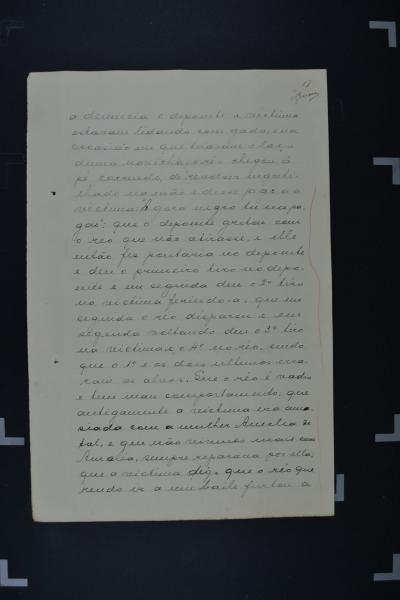 17
a denuncia o depoente e victima
estavam lidando com gado, e na
occasião em que tiravam o laço
duma novilha o réo chegou á
pé correndo, de revolver engati-
lhado na mão e disse para a
victima: "Agora negro tu me pa-
gas"; que o depoente gritou com
o réo que não atirasse, e elle
então fez pontaria no depoente
e deu o primeiro tiro no depo-
ente e em seguida deu o 2º tiro
na victima ferindo-a; que em
seguida o réo disparou e em
seguida voltando deu o 3º tiro
na victima e o 4º no réo, sendo
que o 1º e os dois ultimos erra-
ram os alvos. Que o réo é vadio
e tem mau comportamento; que
antigamente a victima era ama-
siada com a mulher Amelia de
tal, e que não vivendo mais com
Amelia, sempre reparava por ella;
que a victima digo que o réo que
rendo ir a um baile furtou a